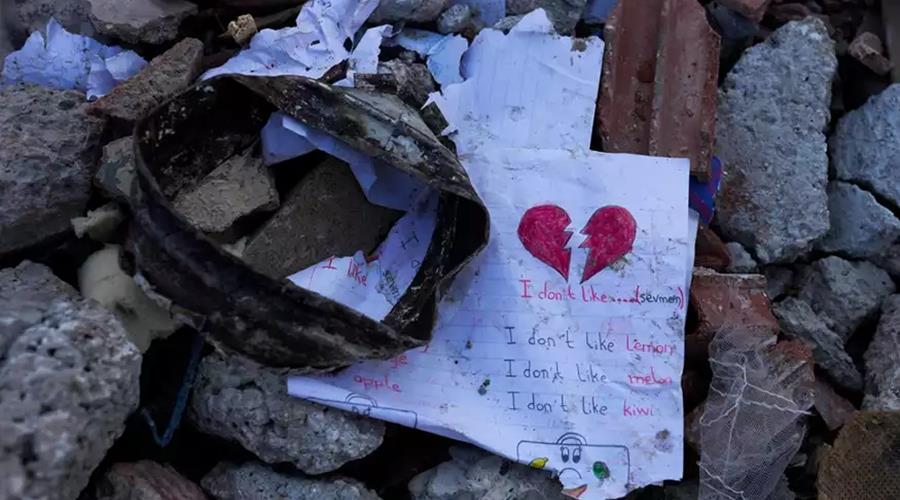 I like
ge
apple
I don't like.....(sevmem)
I don't like Lemon
I don't like melon
I don't like kiwi